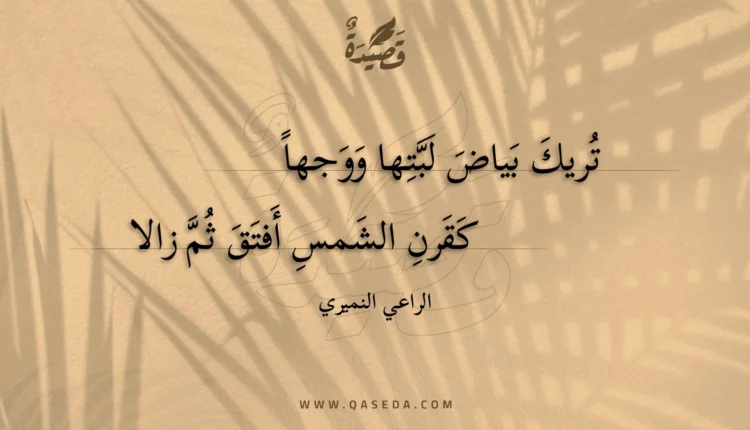 قَصِيْدَةٌ
تُريكَ بَياضَ لَبَّتِها وَوَجهاً
كَقَرنِ الشَمسِ أَفتَقَ ثُمَّ زالا
الراعي النميري
WWW.QASEDA.COM